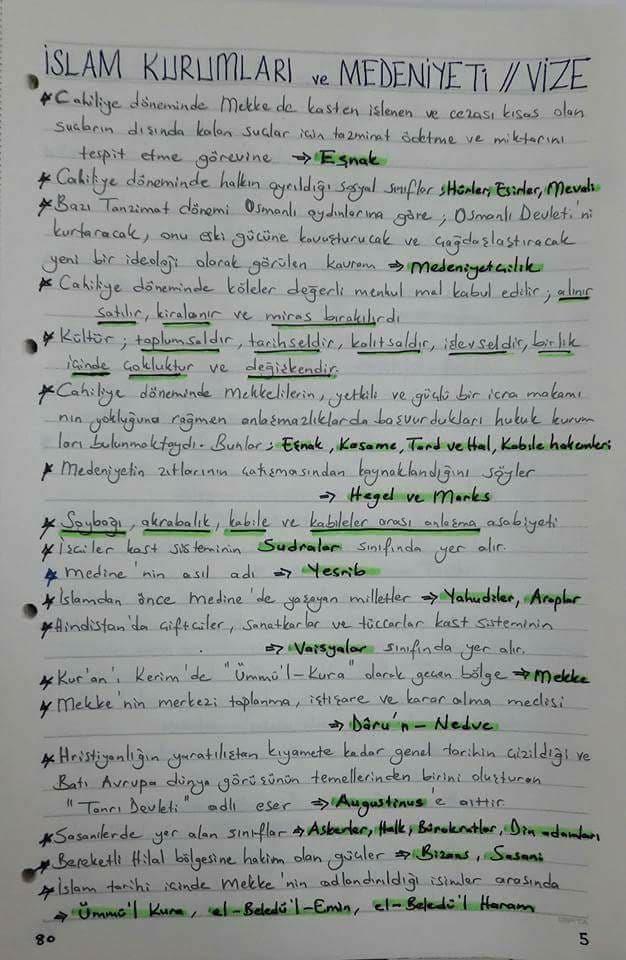 İSLAM KURUMLARI ve MEDENİYETİ // VİZE
* Cahiliye döneminde Mekke de kasten işlenen ve cezası kısas olan
suçların dışında kalan suçlar için tazminat ödetme ve miktarını
tespit etme görevine ⇒ Eşnak
* Cahiliye döneminde halkın ayrıldığı sosyal sınıflar; Hürler, Esirler, Mevali
* Bazı Tanzimat dönemi Osmanlı aydınlarına göre; Osmanlı Devleti'ni
kurtaracak, onu eski gücüne kavuşturucak ve çağdaşlaştıracak
yeni bir ideoloji olarak görülen kavram ⇒ Medeniyetçilik
* Cahiliye döneminde köleler değerli menkul mal kabul edilir; alınır
satılır, kiralanır ve miras bırakılırdı
* Kültür; toplumsaldır, tarihseldir, kalıtsaldır, işlevseldir, birlik
içinde çokluktur ve değişkendir.
* Cahiliye döneminde Mekkelilerin, yetkili ve güçlü bir icra makamı
nın yokluğuna rağmen anlaşmazlıklarda başvurdukları hukuk kurum
ları bulunmaktaydı. Bunlar; Eşnak, Kasame, Tard ve Hal, Kabile hakemleri
* Medeniyetin zıtlarının çatışmasından kaynaklandığını söyler
⇒ Hegel ve Marks
* Soybağı, akrabalık, kabile ve kabileler arası anlaşma asabiyeti
* İşçiler kast sisteminin Sudralar sınıfında yer alır.
* Medine'nin asıl adı ⇒ Yesrib
* İslamdan önce Medine'de yaşayan milletler ⇒ Yahudiler, Araplar
* Hindistan'da çiftçiler, sanatkarlar ve tüccarlar kast sisteminin
⇒ Vaisyalar sınıfında yer alır.
* Kur'an'ı Kerim'de "Ümmü'l-Kura" olarak geçen bölge ⇒ Mekke
* Mekke'nin merkezi toplanma, iştişare ve karar alma meclisi
⇒ Dâru'n-Nedve
* Hristiyanlığın yaratılıştan kıyamete kadar genel tarihin çizildiği ve
Batı Avrupa dünya görüşünün temellerinden birini oluşturan
"Tanrı Devleti" adlı eser ⇒ Augustinus'e aittir.
* Sasanilerde yer alan sınıflar ⇒ Askerler, Halk, Bürokratlar, Din adamları
* Bereketli Hilal bölgesine hakim olan güçler ⇒ Bizans, Sasani
* İslam tarihi içinde Mekke'nin adlandırıldığı isimler arasında
⇒ Ümmü'l Kura, el-Beledü'l-Emin, el-Beledü'l Haram
80 5